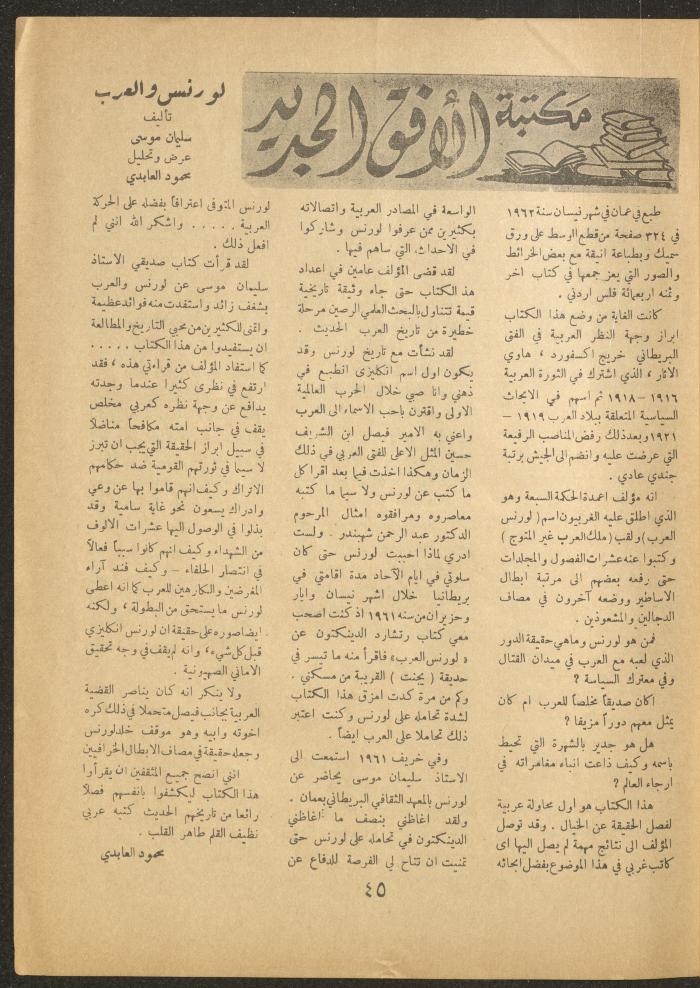 مكتبة الأفق الجديد
لورنس والعرب
تأليف
سليمان موسى
عرض وتحليل
محمود العابدي
طبع في عمان في شهر نيسان سنة ١٩٦٢
في ٣٢٤ صفحة من قطع الوسط على ورق
سميك وبطباعة انيقة مع بعض الخرائط
والصور التي يعز جمعها في كتاب اخر
وثمنه اربعمائة فلس اردني .
كانت الغاية من وضع هذا الكتاب
ابراز وجهة النظر العربية في الفتى
البريطاني خريج اكسفورد ، هاوي
الاثار ، الذي اشترك في الثورة العربية
١٩١٦ – ١٩١٨ ثم اسهم في الابحاث
السياسة المتعلقة ببلاد العرب ١٩١٩ –
١٩٢١ وبعد ذلك رفض المناصب الرفيعة
التي عرضت عليه وانضم الى الجيش برتبة
جندي عادي .
انه مؤلف اعمدة الحكمة السبعة وهو
الذي اطلق عليه الغربيون اسم ( لورنس
العرب ) ولقب ( ملك العرب غير المتوج )
وكتبوا عنه عشرات الفصول والمجلدات
حتى رفعه بعضهم الى مرتبة ابطال
الاساطير ووضعه آخرون في مصاف
الدجالين والمشعوذين .
فمن هو لورنس وماهي حقيقة الدور
الذي لعبه مع العرب في ميدان القتال
وفي معترك السياسة ؟
اكان صديقاً مخلصاً للعرب ام كان
يمثل معهم دوراً مزيفا ؟
هل هو جدير بالشهرة التي تحيط
باسمه وكيف ذاعت انباء مغامراته في
ارجاء العالم ؟
هذا الكتاب هو اول محاولة عربية
لفصل الحقيقة عن الخيال . وقد توصل
المؤلف الى نتائج مهمة لم يصل اليها اى
كاتب غربي في هذا الموضوع بفضل ابحاثه
الواسعة في المصادر العربية واتصالاته
بكثيرين ممن عرفوا لورنس وشاركوا
في الاحداث التي ساهم فيها .
لقد قضى المؤلف عامين في اعداد
هذا الكتاب حتى جاء وثيقة تاريخية
قيمة تتناول بالبحث العلمي الرصين مرحلة
خطيرة من تاريخ العرب الحديث .
لقد نشأت مع تاريخ لورنس وقد
يكون اول اسم انكليزى انطبع في
ذهني وانا صبي خلال الحرب العالمية
الاولى واقترن باحب الاسماء الى العرب
واعني به الامير فيصل ابن الشريف
حسين المثل الاعلى للفتى العربي في ذلك
الزمان وهكذا اخذت فيما بعد اقرا كل
ما كتب عن لورنس ولا سيما ما كتبه
معاصروه ومرافقوه امثال المرحوم
الدكتور عبد الرحمن شهبندر . ولست
ادري لماذا احببت لورنس حتى كان
سلوتي في ايام الآحاد مدة اقامتي في
بريطانيا خلال اشهر نيسان وايار
وحزيران من سنه ١٩٦١ اذ كنت اصحب
معي كتاب رتشارد الدينكتون عن
« لورنس العرب » فاقرأ منه ما تيسر في
حديقة ( ريجنت ) القريبة من مسكني .
وكم من مرة كدت امزق هذا الكتاب
لشدة تحامله على لورنس وكنت اعتبر
ذلك تحاملا على العرب ايضاً .
وفي خريف ١٩٦١ استمعت الى
الاستاذ سليمان موسى يحاضر عن
لورنس بالمعهد الثقافي البريطاني بعمان .
ولقد اغاظني بنصف ما اغاظني
الدينكتون في تحامله على لورنس حتى
تمنيت ان تتاح لي الفرصة للدفاع عن
لورنس المتوفى اعترافاً بفضله على الحركة
العربية . . . . . واشكر الله انني لم
افعل ذلك .
لقد قرأت كتاب صديقي الاستاذ
سليمان موسى عن لورنس والعرب
بشغف زائد واستفدت منه فوائد عظيمة
واتمنى للكثيرين من محبي التاريخ والمطالعة
ان يستفيدوا من هذا الكتاب . . . . .
كما استفاد المؤلف من قراءتي هذه ، فقد
ارتفع في نظري كثيرا عندما وجدته
يدافع عن وجهة نظره كعربي مخلص
يقف في جانب امته مكافحاً مناضلاً
في سبيل ابراز الحقيقة التي يجب ان تبرز
لا سيما في ثورتهم القومية ضد حكامهم
الاتراك وكيف انهم قاموا بها عن وعي
وادراك يسعون نحو غاية سامية وقد
بذلوا في الوصول اليها عشرات الالوف
من الشهداء وكيف انهم كانوا سبباً فعالاً
في انتصار الحلفاء – وكيف فند آراء
المغرضين والكارهين للعرب كما انه اعطى
لورنس ما يستحق من البطولة ، ولكنه
ايضا صوره على حقيقة ان لورنس انكليزي
قبل كل شيء ، وانه لم يقف في وجه تحقيق
الاماني الصهيونية .
ولا ينكر انه كان يناصر القضية
العربية بجانب فيصل متحملا في ذلك كره
اخوته وابيه وهو موقف خلد لورنس
وجعله حقيقة في مصاف الابطال الخرافيين
انني انصح جميع المثقفين ان يقرأوا
هذا الكتاب ليكشفوا بانفسهم فصلا
رائعا من تاريخهم الحديث كتبه عربي
نظيف القلم طاهر القلب .
محمود العابدي
٤٥